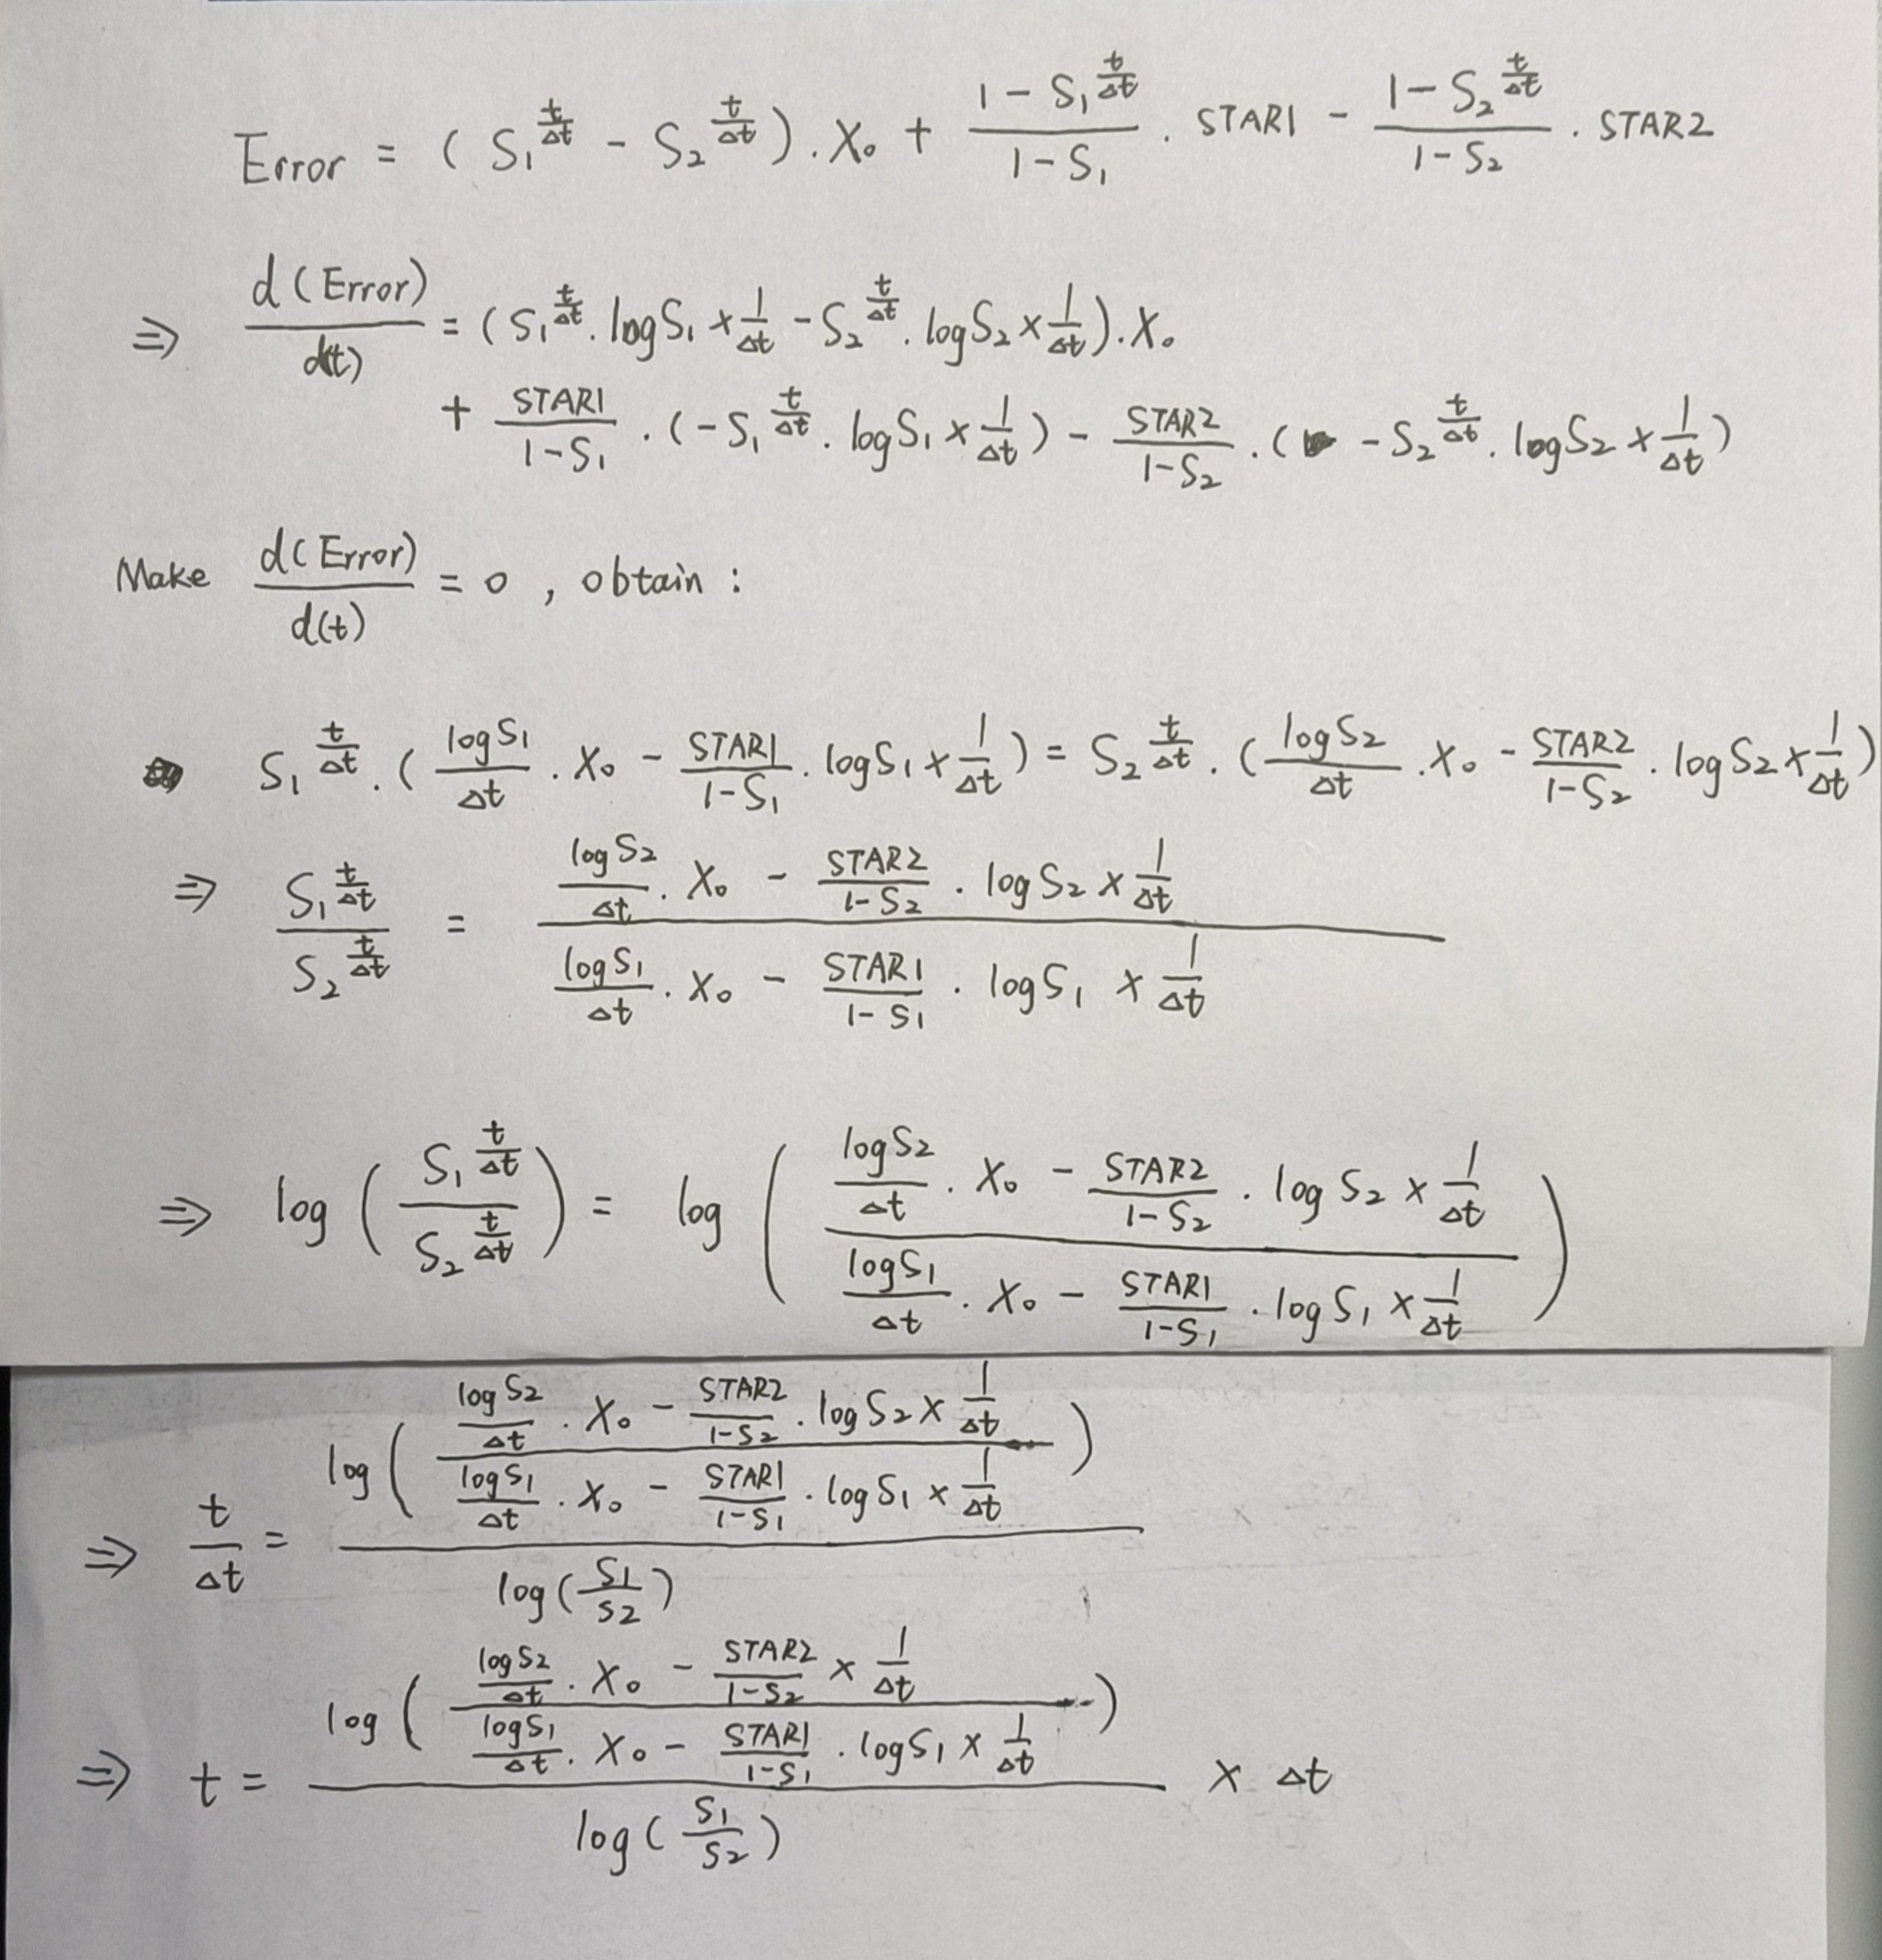 Error = ( S₁^(t/Δt) - S₂^(t/Δt) ) . X₀ + (1 - S₁^(t/Δt))/(1 - S₁) . STAR1 - (1 - S₂^(t/Δt))/(1 - S₂) . STAR2
⇒ d(Error)/d(t) = ( S₁^(t/Δt) . log S₁ × 1/Δt - S₂^(t/Δt) . log S₂ × 1/Δt ) . X₀
+ STAR1/(1-S₁) . ( - S₁^(t/Δt) . log S₁ × 1/Δt ) - STAR2/(1-S₂) . ( - S₂^(t/Δt) . log S₂ × 1/Δt )
Make d(Error)/d(t) = 0 , obtain :
S₁^(t/Δt) . ( log S₁/Δt . X₀ - STAR1/(1-S₁) . log S₁ × 1/Δt ) = S₂^(t/Δt) . ( log S₂/Δt . X₀ - STAR2/(1-S₂) . log S₂ × 1/Δt )
⇒ S₁^(t/Δt) / S₂^(t/Δt) = ( log S₂/Δt . X₀ - STAR2/(1-S₂) . log S₂ × 1/Δt ) / ( log S₁/Δt . X₀ - STAR1/(1-S₁) . log S₁ × 1/Δt )
⇒ log ( S₁^(t/Δt) / S₂^(t/Δt) ) = log ( ( log S₂/Δt . X₀ - STAR2/(1-S₂) . log S₂ × 1/Δt ) / ( log S₁/Δt . X₀ - STAR1/(1-S₁) . log S₁ × 1/Δt ) )
⇒ t/Δt = log ( ( log S₂/Δt . X₀ - STAR2/(1-S₂) . log S₂ × 1/Δt ) / ( log S₁/Δt . X₀ - STAR1/(1-S₁) . log S₁ × 1/Δt ) ) / log ( S₁/S₂ )
⇒ t = log ( ( log S₂/Δt . X₀ - STAR2/(1-S₂) × 1/Δt ) / ( log S₁/Δt . X₀ - STAR1/(1-S₁) . log S₁ × 1/Δt ) ) / log ( S₁/S₂ ) × Δt